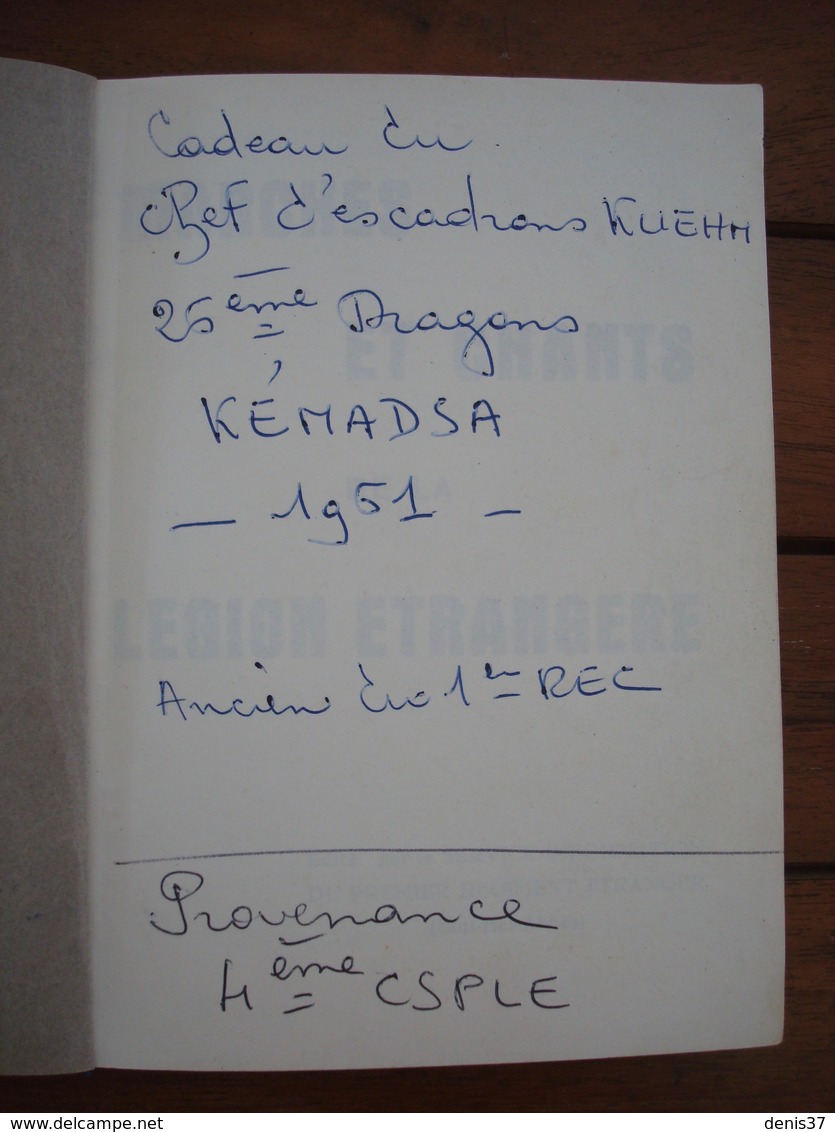 Cadeau du
Chef d'escadrons KUEHN
25ème Dragons
KÉNADSA
— 1961 —
Ancien du 1er REC
Provenance
4ème CSPLE
ET CHANTS
LEGION ETRANGERE
www.delcampe.net
denis37